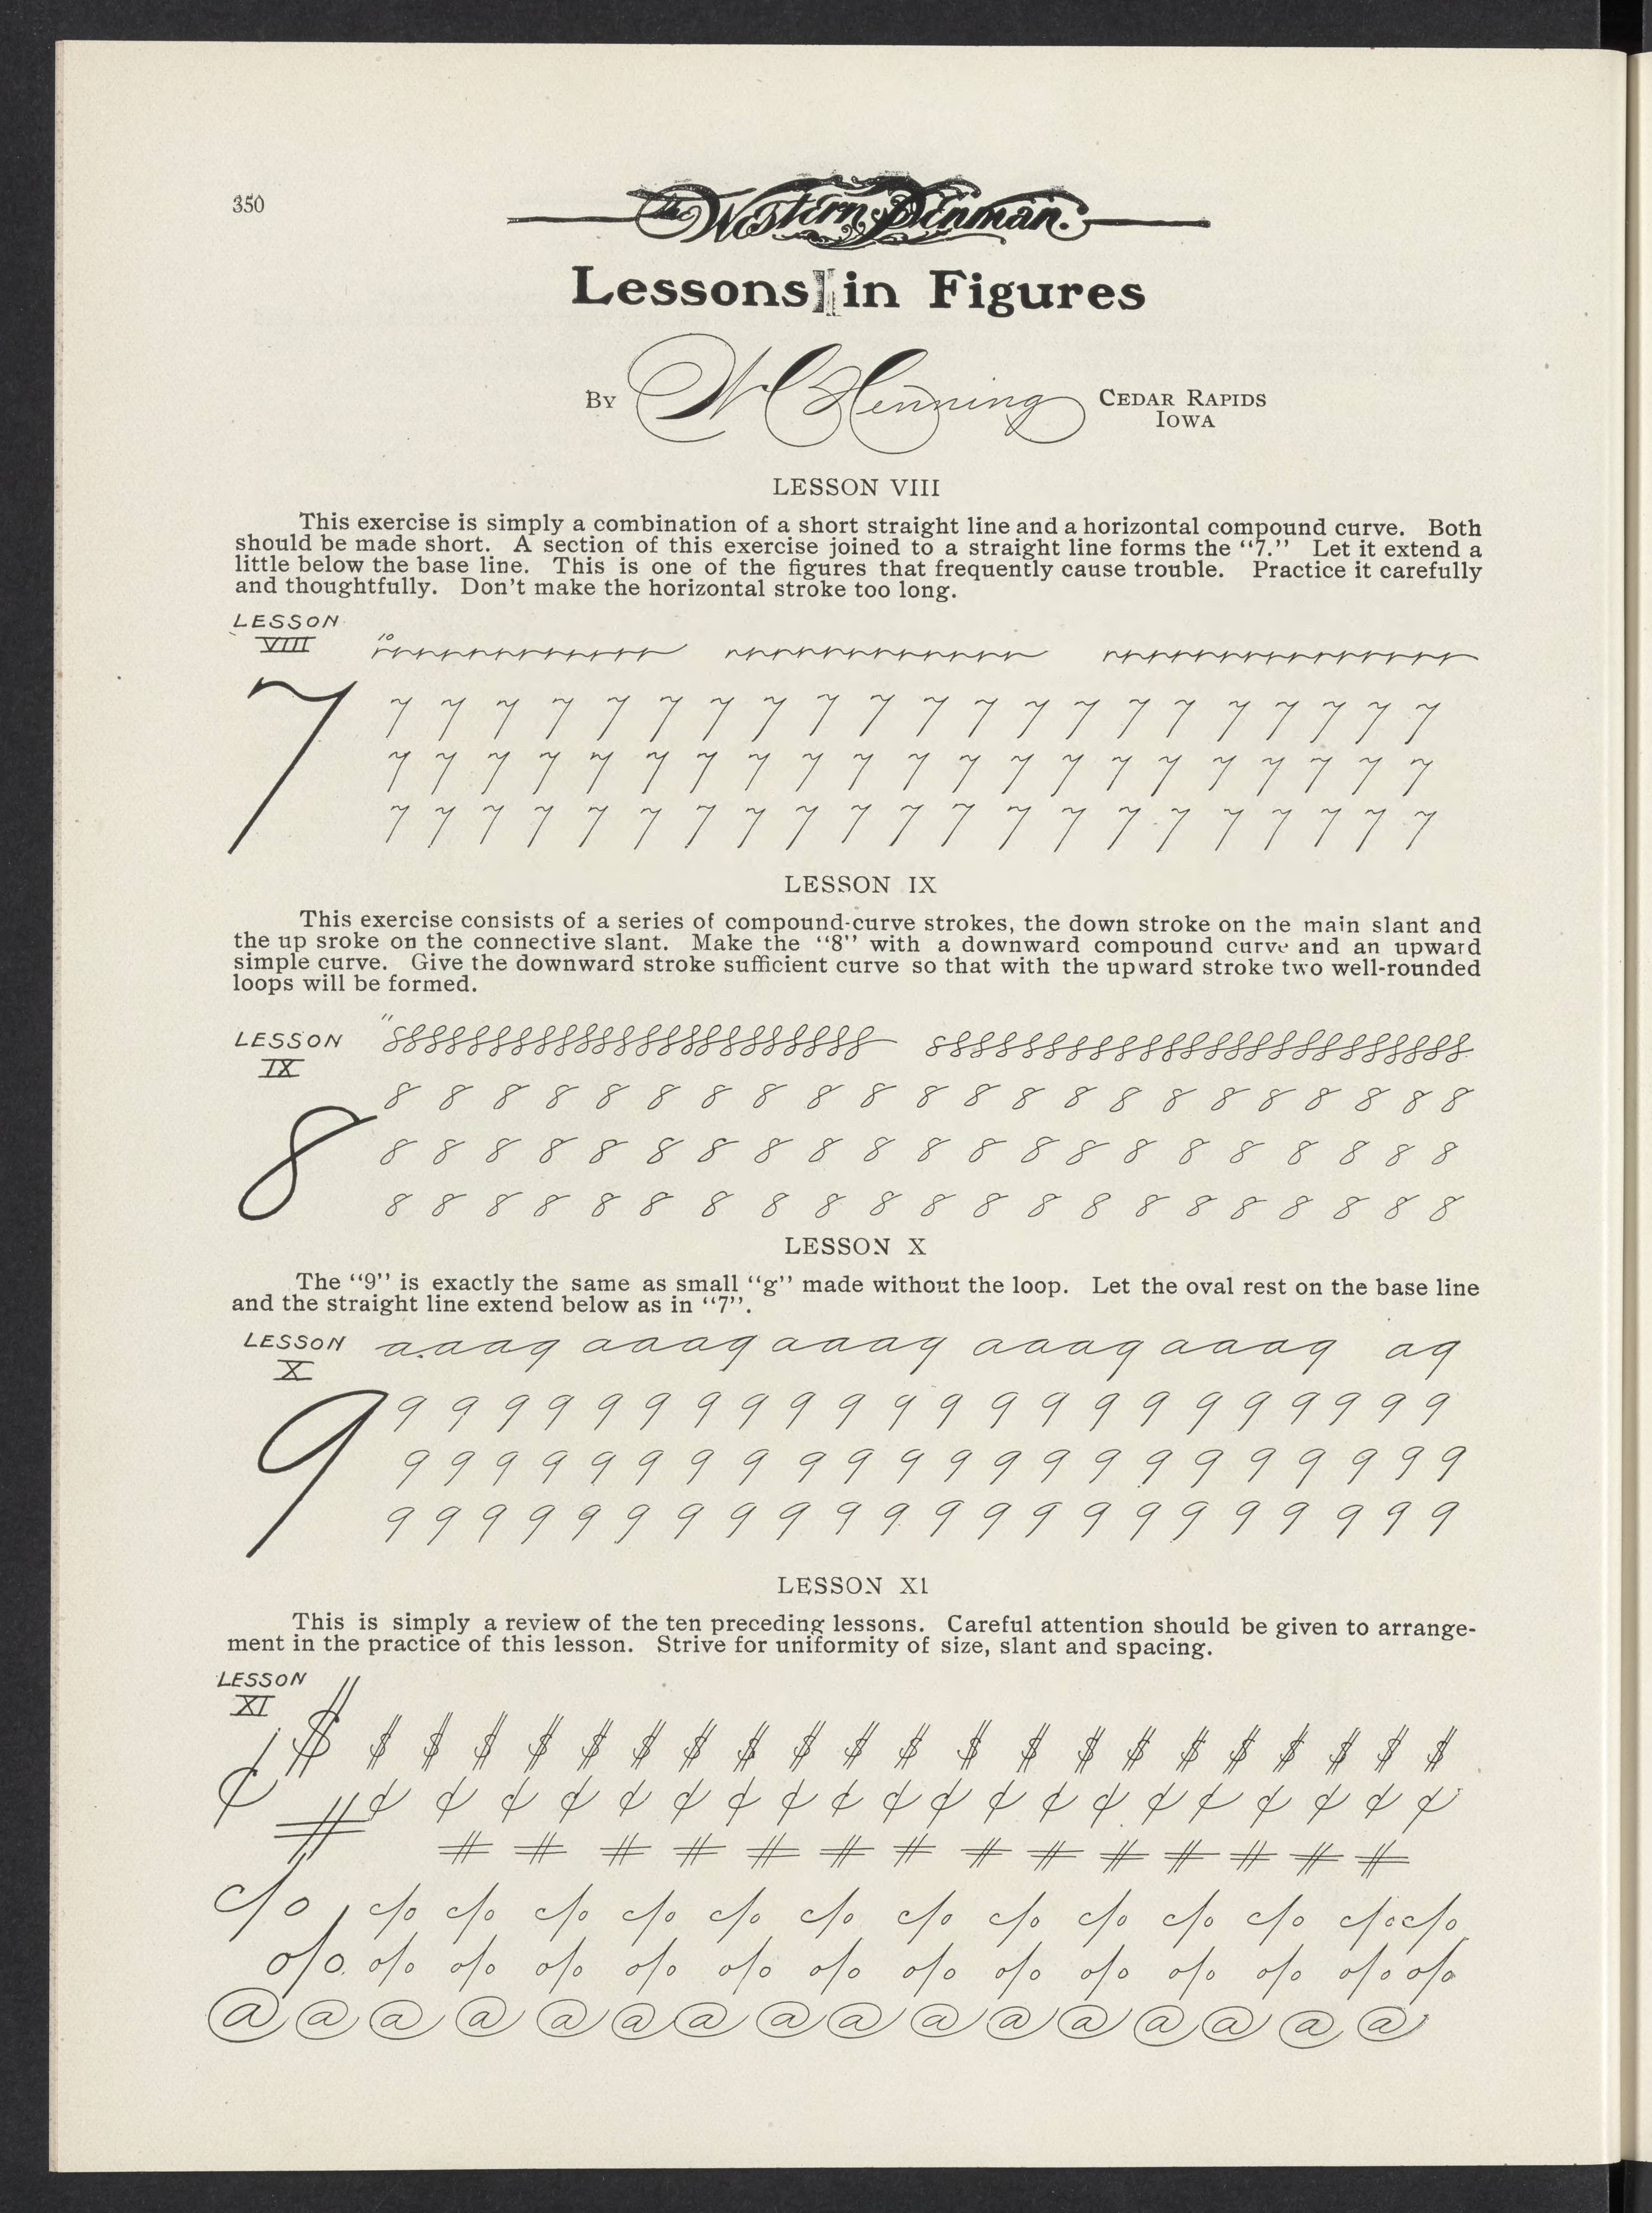 350
The Western Penman.
Lessons in Figures
By W C Henning Cedar Rapids
Iowa
LESSON VIII
This exercise is simply a combination of a short straight line and a horizontal compound curve. Both
should be made short. A section of this exercise joined to a straight line forms the “7.” Let it extend a
little below the base line. This is one of the figures that frequently cause trouble. Practice it carefully
and thoughtfully. Don't make the horizontal stroke too long.
LESSON
VIII
7 7 7 7 7 7 7 7 7 7 7 7 7 7 7 7 7 7 7 7 7 7
7 7 7 7 7 7 7 7 7 7 7 7 7 7 7 7 7 7 7 7 7
7 7 7 7 7 7 7 7 7 7 7 7 7 7 7 7 7 7 7 7 7
LESSON IX
This exercise consists of a series of compound-curve strokes, the down stroke on the main slant and
the up sroke on the connective slant. Make the “8” with a downward compound curve and an upward
simple curve. Give the downward stroke sufficient curve so that with the upward stroke two well-rounded
loops will be formed.
LESSON
IX
8 8 8 8 8 8 8 8 8 8 8 8 8 8 8 8 8 8 8 8 8 8
8 8 8 8 8 8 8 8 8 8 8 8 8 8 8 8 8 8 8 8 8 8
8 8 8 8 8 8 8 8 8 8 8 8 8 8 8 8 8 8 8 8 8
LESSON X
The “9” is exactly the same as small “g” made without the loop. Let the oval rest on the base line
and the straight line extend below as in “7”.
LESSON
X
aaa9 aaa9 aaa9 aaa9 aaa9 a9
9 9 9 9 9 9 9 9 9 9 9 9 9 9 9 9 9 9 9 9 9 9 9
9 9 9 9 9 9 9 9 9 9 9 9 9 9 9 9 9 9 9 9 9 9
9 9 9 9 9 9 9 9 9 9 9 9 9 9 9 9 9 9 9 9 9 9
LESSON XI
This is simply a review of the ten preceding lessons. Careful attention should be given to arrange-
ment in the practice of this lesson. Strive for uniformity of size, slant and spacing.
LESSON
XI
$ $ $ $ $ $ $ $ $ $ $ $ $ $ $ $ $ $ $ $ $ $
¢ ¢ ¢ ¢ ¢ ¢ ¢ ¢ ¢ ¢ ¢ ¢ ¢ ¢ ¢ ¢ ¢ ¢ ¢ ¢ ¢
# # # # # # # # # # # # # # #
c/o c/o c/o c/o c/o c/o c/o c/o c/o c/o c/o c/o c/o c/o
o/o o/o o/o o/o o/o o/o o/o o/o o/o o/o o/o o/o o/o o/o
@ @ @ @ @ @ @ @ @ @ @ @ @ @ @ @